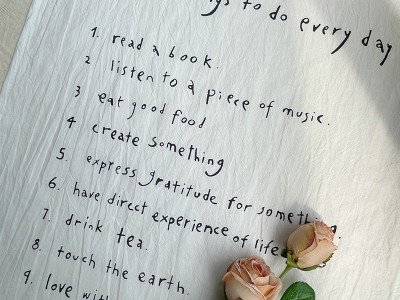 to do every day
1. read a book.
2 listen to a piece of music.
3 eat good food
4 create something
5. express gratitude for something.
6. have direct experience of life
7. drink tea.
8. touch the earth.
9. love